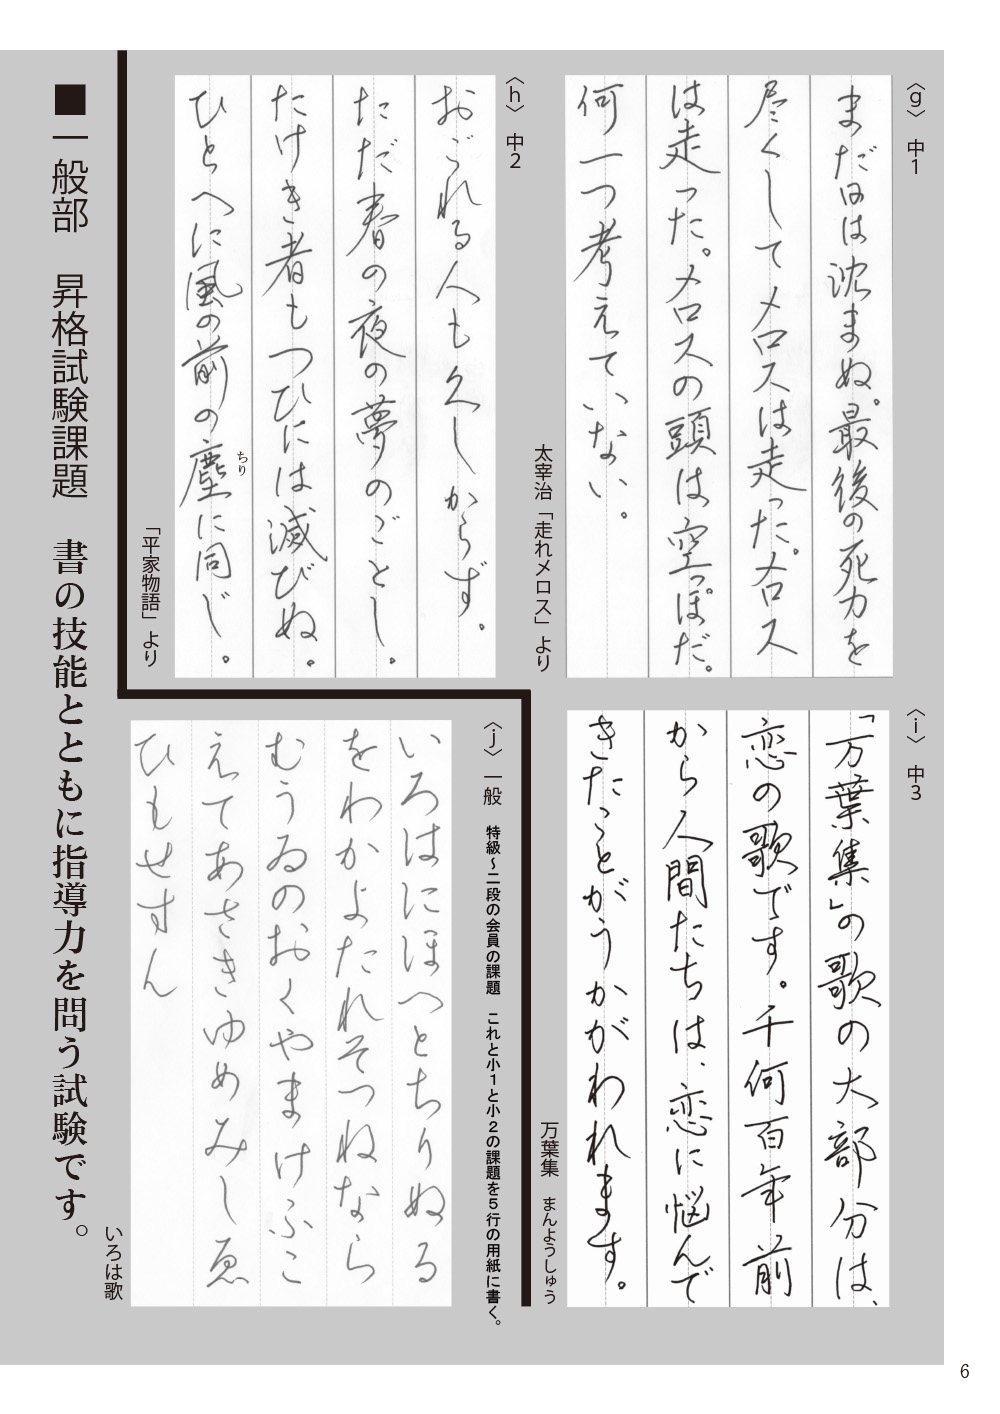 〈g〉 中1
まだ日は沈まぬ。最後の死力を
尽くしてメロスは走った。メロス
は走った。メロスの頭は空っぽだ。
何一つ考えていない。
太宰治「走れメロス」より
〈h〉 中2
おごれる人も久しからず。
ただ春の夜の夢のごとし。
たけき者もつひには滅びぬ。
ひとへに風の前の塵に同じ。
ちり
「平家物語」より
〈i〉 中3
「万葉集」の歌の大部分は、
恋の歌です。千何百年前
から人間たちは、恋に悩んで
きたことがうかがわれます。
万葉集 まんようしゅう
〈j〉 一般 特級～二段の会員の課題 これと小1と小2の課題を5行の用紙に書く。
いろはにほへとちりぬる
をわかよたれそつねなら
むうゐのおくやまけふこ
えてあさきゆめみしゑ
ひもせすん
いろは歌
■一般部 昇格試験課題 書の技能とともに指導力を問う試験です。
6